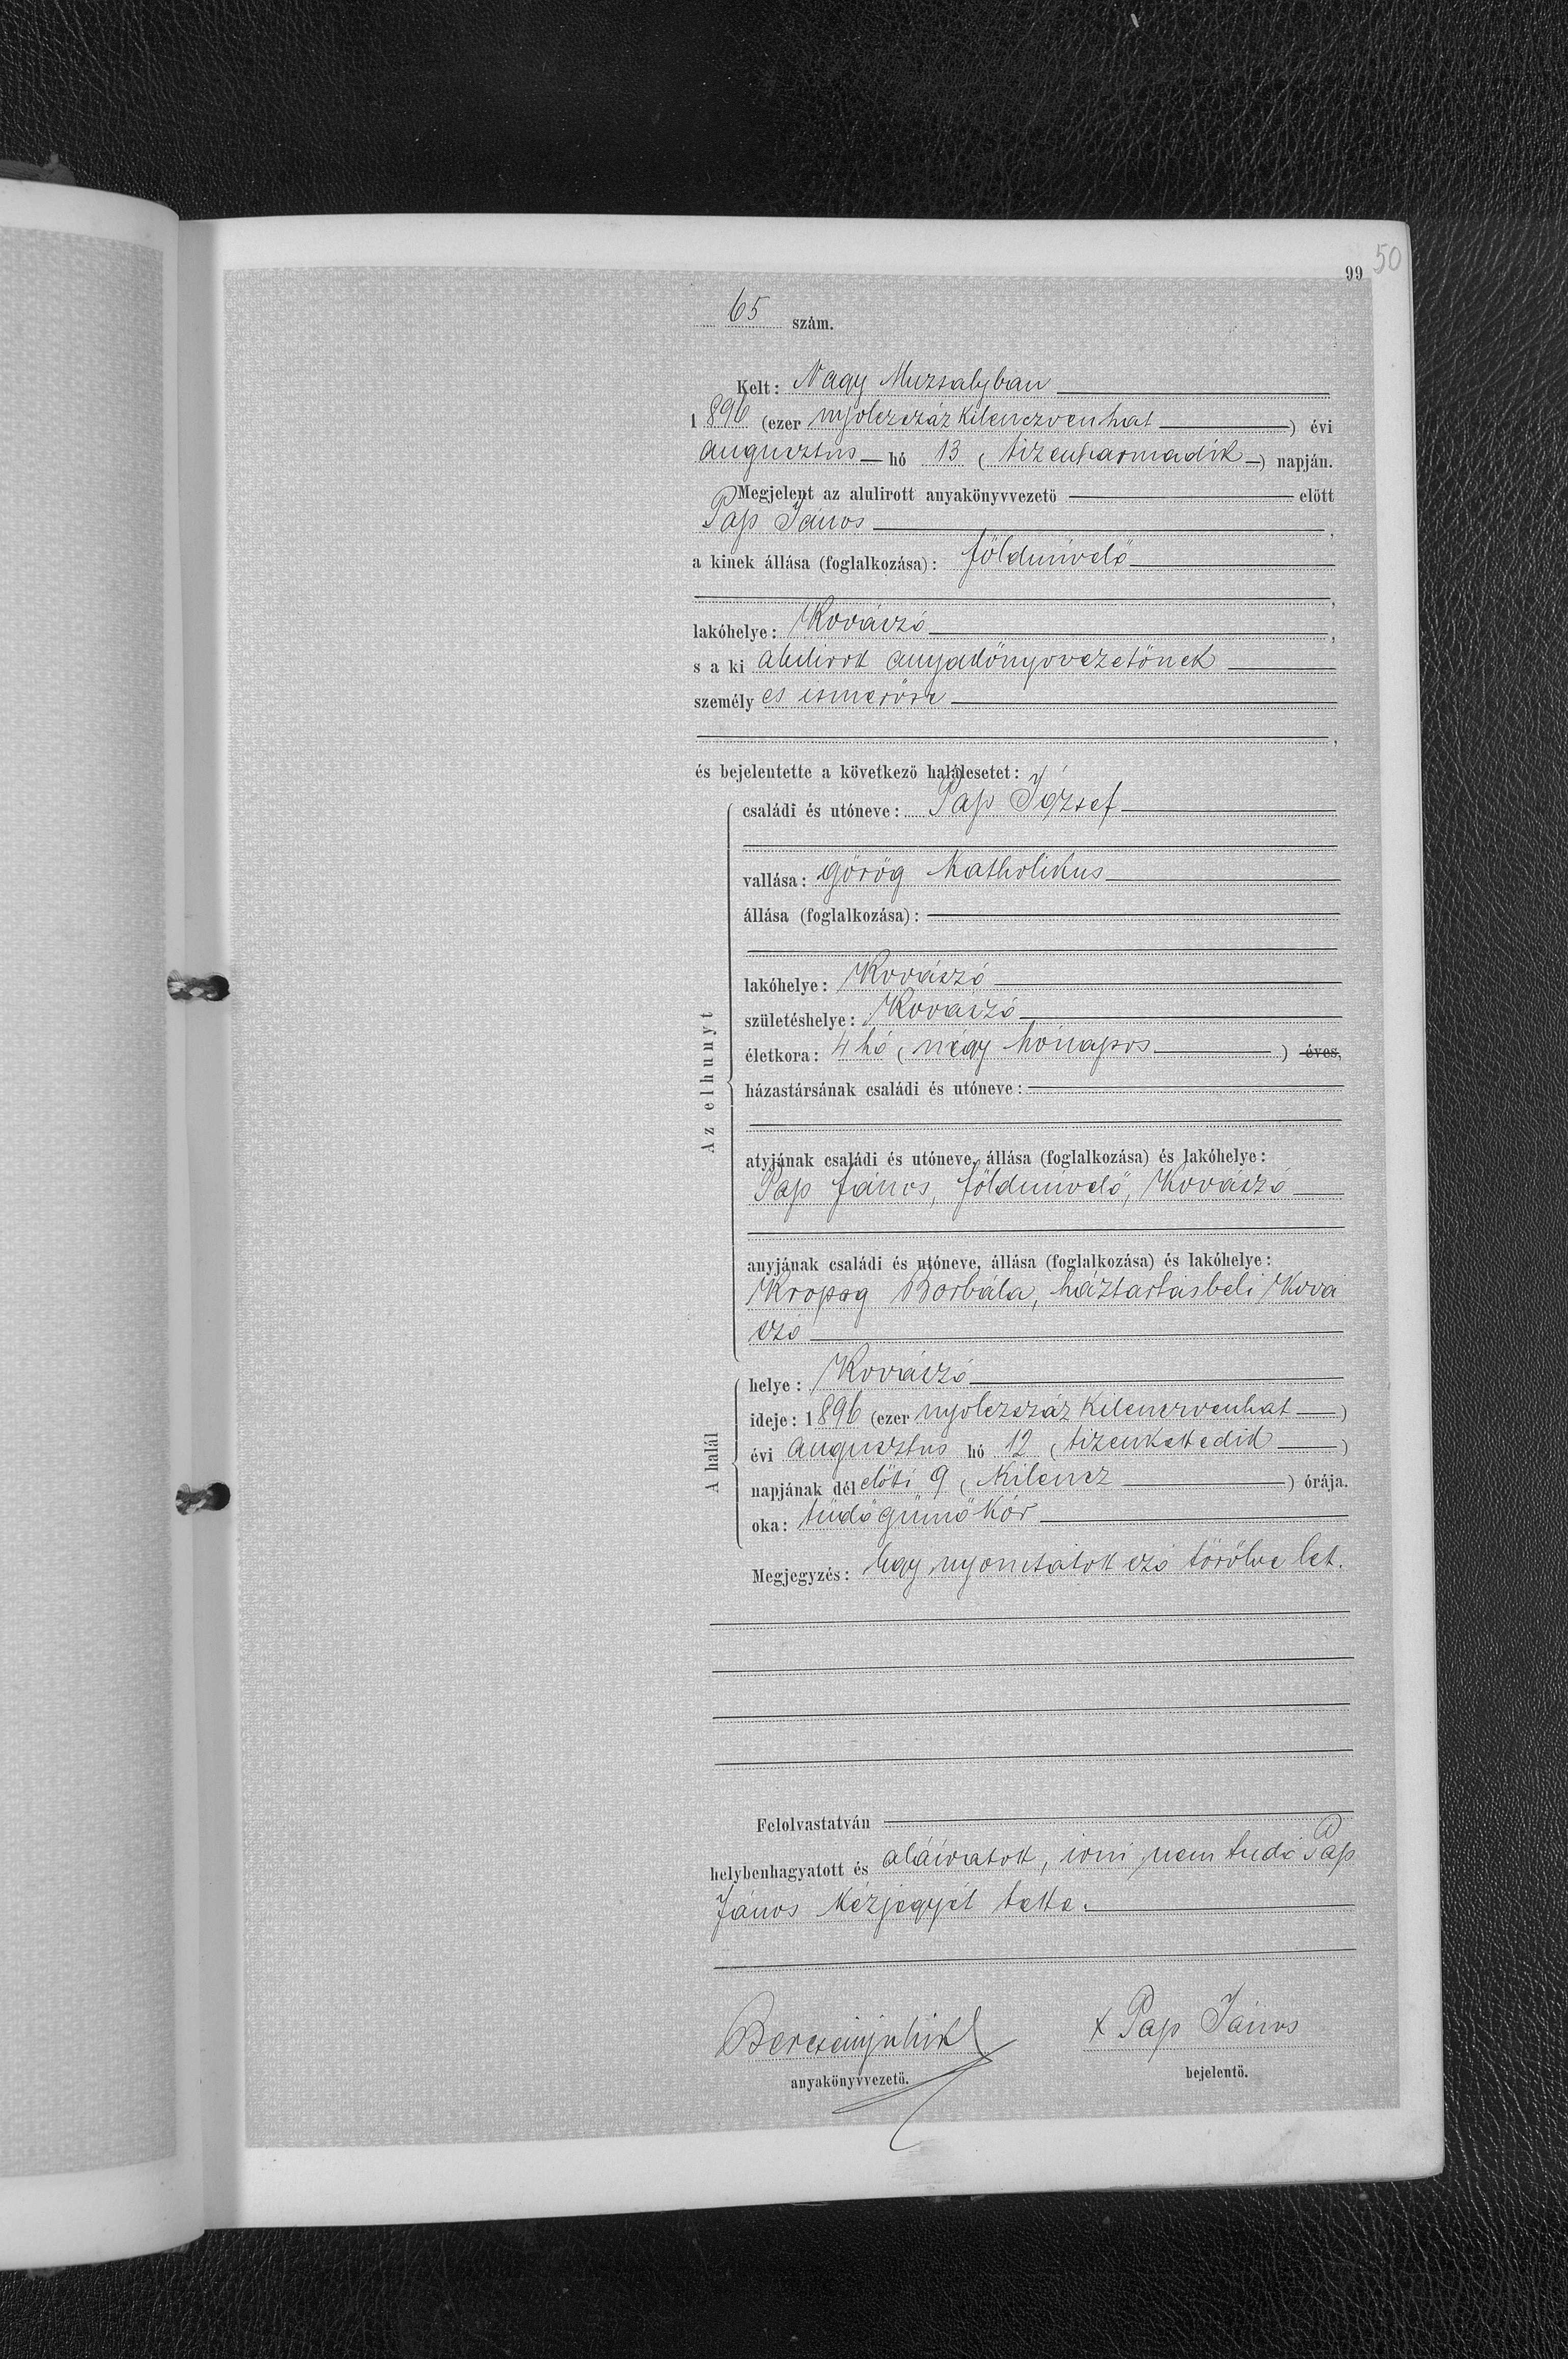 50
99
65 szám.
Kelt: Nagy Muzsalyban
1 896 (ezer nyolczszáz kilenczvenhat) évi
augusztus hó 13 (tizenharmadik) napján.
Megjelent az alulirott anyakönyvvezető előtt
Pap János,
a kinek állása (foglalkozása): földmivelő
,
lakóhelye: Kovászó,
s a ki alulirott anyakönyvvezetőnek
személy es ismerőse
,
és bejelentette a következő halálesetet:
Az elhunyt
családi és utóneve: Pap József
vallása: görög katholikus
állása (foglalkozása):
lakóhelye: Kovászó
születéshelye: Kovászó
életkora: 4 hó (négy hónapos) éves,
házastársának családi és utóneve:
atyjának családi és utóneve, állása (foglalkozása) és lakóhelye:
Pap János, földmivelő, Kovászó
anyjának családi és utóneve, állása (foglalkozása) és lakóhelye:
Kropog Borbála, háztartásbeli Ková
szó
A halál
helye: Kovászó
ideje: 1896 (ezer nyolczszáz kilenczvenhat)
évi augusztus hó 12 (tizenkettedik)
napjának délelőtti 9 (kilencz) órája.
oka: tüdőgümőkór
Megjegyzés: Egy nyomtatott szó törölve let.
Felolvastatván
helybenhagyatott és aláiratott, irni nem tudó Pap
János kézjegyét tette.
x Pap János
anyakönyvvezető.
bejelentő.